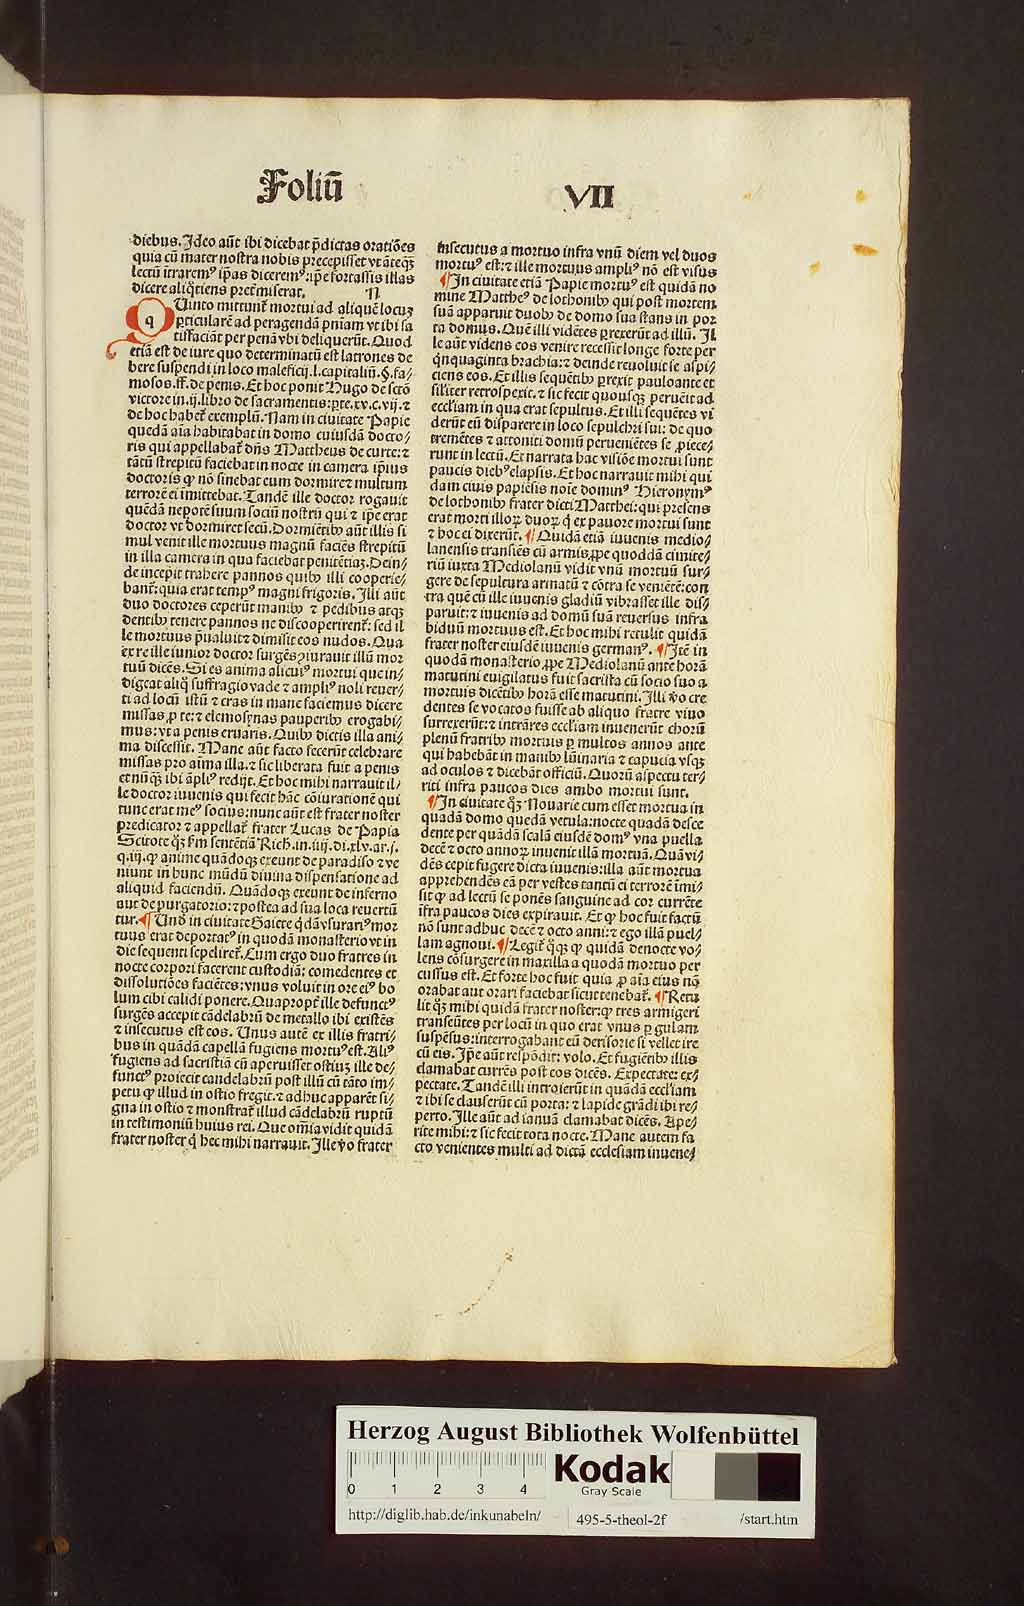 Foliū
VII
diebus. Ideo aūt ibi dicebat p̄dictas oratiōes
quia cū mater nostra nobis precepisset vt āteqꝫ
lectū ītraremꝰ ip̄as diceremꝰ: ip̄e fortassis illas
dicere aliq̄tiens pretmiserat. N
q
Uinto mittunt̄ mortui ad aliquē locuꝫ
ꝑticularē ad peragendā pn̄iam vt ibi sa
tisfaciāt per penā vbi deliquerūt. Quod
etiā est de iure quo determinatū est latrones de
bere suspendi in loco maleficij. l. capitaliū. §. fa⸗
mosos. ff. de penis. Et hoc ponit Hugo de sctō
victore in. ij. libro de sacramentis: ꝑte. xv. c. vij. ⁊
de hoc habet̄ exemplū. Nam in ciuitate Papie
quedā aīa habitabat in domo cuiusdā docto⸗
ris qui appellabat̄ dn̄s Mattheus de curte: ⁊
tātū strepitū faciebat in nocte in camera ip̄ius
doctoris ꝙ nō sinebat eum dormire ⁊ multum
terrorē ei īmittebat. Tandē ille doctor rogauit
quēdā nepotē suum sociū nostrū qui ⁊ ip̄e erat
doctor vt dormiret secū. Dormiētibꝰ aūt illis si
mul venit ille mortuus magnū faciēs strepitū
in illa camera in qua faciebat penitētiaꝫ. Dein⸗
de incepit trahere pannos quibꝰ illi cooperie⸗
bant̄: quia erat tempꝰ magni frigoris. Illi aūt
duo doctores ceperūt manibꝰ ⁊ pedibus atqꝫ
dentibꝰ tenere pannos ne discooperirent̄: sed il
le mortuus p̄ualuit ⁊ dimisit eos nudos. Qua
ex re ille iunior doctor surgēs ꝯiurauit illū mor
tuū dicēs. Si es anima alicuiꝰ mortui que in⸗
digeat aliq̄ suffragio vade ⁊ ampliꝰ noli reuer⸗
ti ad locū istū ⁊ cras in mane faciemus dicere
missas ꝓ te: ⁊ elemosynas pauperibꝰ erogabi⸗
mus: vt a penis eruaris. Quibꝰ dictis illa ani⸗
ma discessit. Mane aūt facto fecerūt celebrare
missas pro aīma illa. ⁊ sic liberata fuit a penis
et nūqꝫ ibi āpliꝰ redijt. Et hoc mihi narrauit il⸗
le doctor iuuenis qui fecit hāc cōiurationē qui
tunc erat meꝰ socius: nunc aūt est frater noster
predicator ⁊ appellat̄ frater Lucas de Papia
Scitote qꝫ fm sententiā Rich. in. iiij. di. xlv. ar. j.
q. iij. ꝙ anime quādoqꝫ exeunt de paradiso ⁊ ve
niunt in hunc mūdū diuina dispensatione ad
aliquid faciendū. Quādoqꝫ exeunt de inferno
aut de purgatorio: ⁊ postea ad sua loca reuertū
tur. ¶ Und̄ in ciuitate Saiete q̄dā vsurariꝰ mor
tuus erat deportatꝰ in quodā monasterio vt in
die sequenti sepeliret̄. Cum ergo duo fratres in
nocte corpori facerent custodiā: comedentes et
dissolutiōes faciētes: vnus voluit in ore eiꝰ bo
lum cibi calidi ponere. Quapropt̄ ille defunctꝰ
surgēs accepit cādelabrū de metallo ibi existēs
⁊ insecutus est eos. Unus autē ex illis fratri⸗
bus in quādā capellā fugiens mortuꝰ est. Aliꝰ
fugiens ad sacristiā cū aperuisset ostiuꝫ ille de⸗
functꝰ proiecit candelabrū post illū cū tāto im⸗
petu ꝙ illud in ostio fregit. ⁊ adhuc apparēt si⸗
gna in ostio ⁊ monstrat̄ illud cādelabrū ruptū
in testimoniū huius rei. Que om̄ia vidit quidā
frater noster q̄ hec mihi narrauit. Ille v̄o frater
insecutus a mortuo infra vnū diem vel duos
mortuꝰ est: ⁊ ille mortuus ampliꝰ nō est visus
¶ In ciuitate etiā Papie mortuꝰ est quidā no
mine Mattheꝰ de lothonibꝰ qui post mortem
suā apparuit duobꝰ de domo sua stans in por
ta domus. Quē illi vidētes ꝑrexerūt ad illū. Il
le aūt videns eos venire recessit longe forte per
q̄nquaginta brachia: ⁊ deinde reuoluit se aspi⸗
ciens eos. Et illis sequētibꝰ ꝑrexit pauloante et
sil̄iter retrospexit. ⁊ sic fecit quousqꝫ peruēit ad
eccl̄iam in qua erat sepultus. Et illi sequētes vi
derūt eū disparere in loco sepulchri sui: de quo
tremētes ⁊ attoniti domū peruenietes se ꝓiece⸗
runt in lectū. Et narrata hac visiōe mortui sunt
paucis diebꝰ elapsis. Et hoc narrauit mihi qui
dam ciuis papiēsis noīe dominꝰ Hieronymꝰ
de lothonibꝰ frater dicti Matthei: qui presens
erat morti illoꝝ duoꝝ q̄ ex pauore mortui sunt
⁊ hoc ei dixerūt. ¶ Quidā etiā iuuenis medio⸗
lanensis transiēs cū armis ꝓpe quoddā cimite⸗
riū iuxta Mediolanū vidit vnū mortuū sur⸗
gere de sepultura armatū ⁊ cōtra se veniētē: con
tra quē cū ille iuuenis gladiū vibrasset ille dis⸗
paruit: ⁊ iuuenis ad domū suā reuersus infra
biduū mortuus est. Et hoc mihi retulit quidā
frater noster eiusdē iuuenis germanꝰ. ¶ Itē in
quodā monasterio ꝓpe Mediolanū ante horā
matutini euigilatus fuit sacrista cū socio suo a
mortuis dicētibꝰ horā esse matutini. Illi v̄o cre
dentes se vocatos fuisse ab aliquo fratre viuo
surrexerūt: ⁊ intrātes eccl̄iam inuenerūt chorū
plenū fratribꝰ mortuis ꝑ multos annos ante
qui habebāt in manibꝰ lūinaria ⁊ capucia vsqꝫ
ad oculos ⁊ dicebāt officiū. Quorū aspectu ter⸗
riti infra paucos dies ambo mortui sunt.
¶ In ciuitate qꝫ Nouarie cum esset mortua in
quadā domo quedā vetula: nocte quadā desce
dente per quādā scalā eiusdē domꝰ vna puella
decē ⁊ octo annoꝝ inuenit illā mortuā. Quā vi⸗
dēs cepit fugere dicta iuuenis: illa aūt mortua
apprehendēs eā per vestes tantū ei terrorē īmi⸗
sit ꝙ ad lectū se ponēs sanguine ad cor currēte
īfra paucos dies expirauit. Et ꝙ hoc fuit factū
nō sunt adhuc decē ⁊ octo anni: ⁊ ego illā puel⸗
lam agnoui. ¶ Legit̄ qꝫ ꝙ quidā de nocte vo⸗
lens cōsurgere in maxilla a quodā mortuo per
cussus est. Et forte hoc fuit quia ꝓ aīa eius nō
orabat aut orari faciebat sicut tenebat̄. ¶ Retu
lit qꝫ mihi quidā frater noster: ꝙ tres armigeri
transeūtes per locū in quo erat vnus ꝑ gulam
suspēsus: interrogabant eū derisorie si vellet ire
cū eis. Ip̄e aūt respōdit: volo. Et fugiētibꝰ illis
clamabat currēs post eos dicēs. Expectate: ex⸗
pectate. Tandē illi introierūt in quādā eccl̄iam
⁊ ibi se clauserūt cū porta: ⁊ lapide grādi ibi re⸗
perto. Ille aūt ad ianuā clamabat dicēs. Ape⸗
rite mihi: ⁊ sic fecit tota nocte. Mane autem fa
cto venientes multi ad dictā ecclesiam inuene⸗
Herzog August Bibliothek Wolfenbüttel
0 1 2 3 4
Kodak
Gray Scale
http://diglib.hab.de/inkunabeln/
495-5-theol-2f
/start.htm